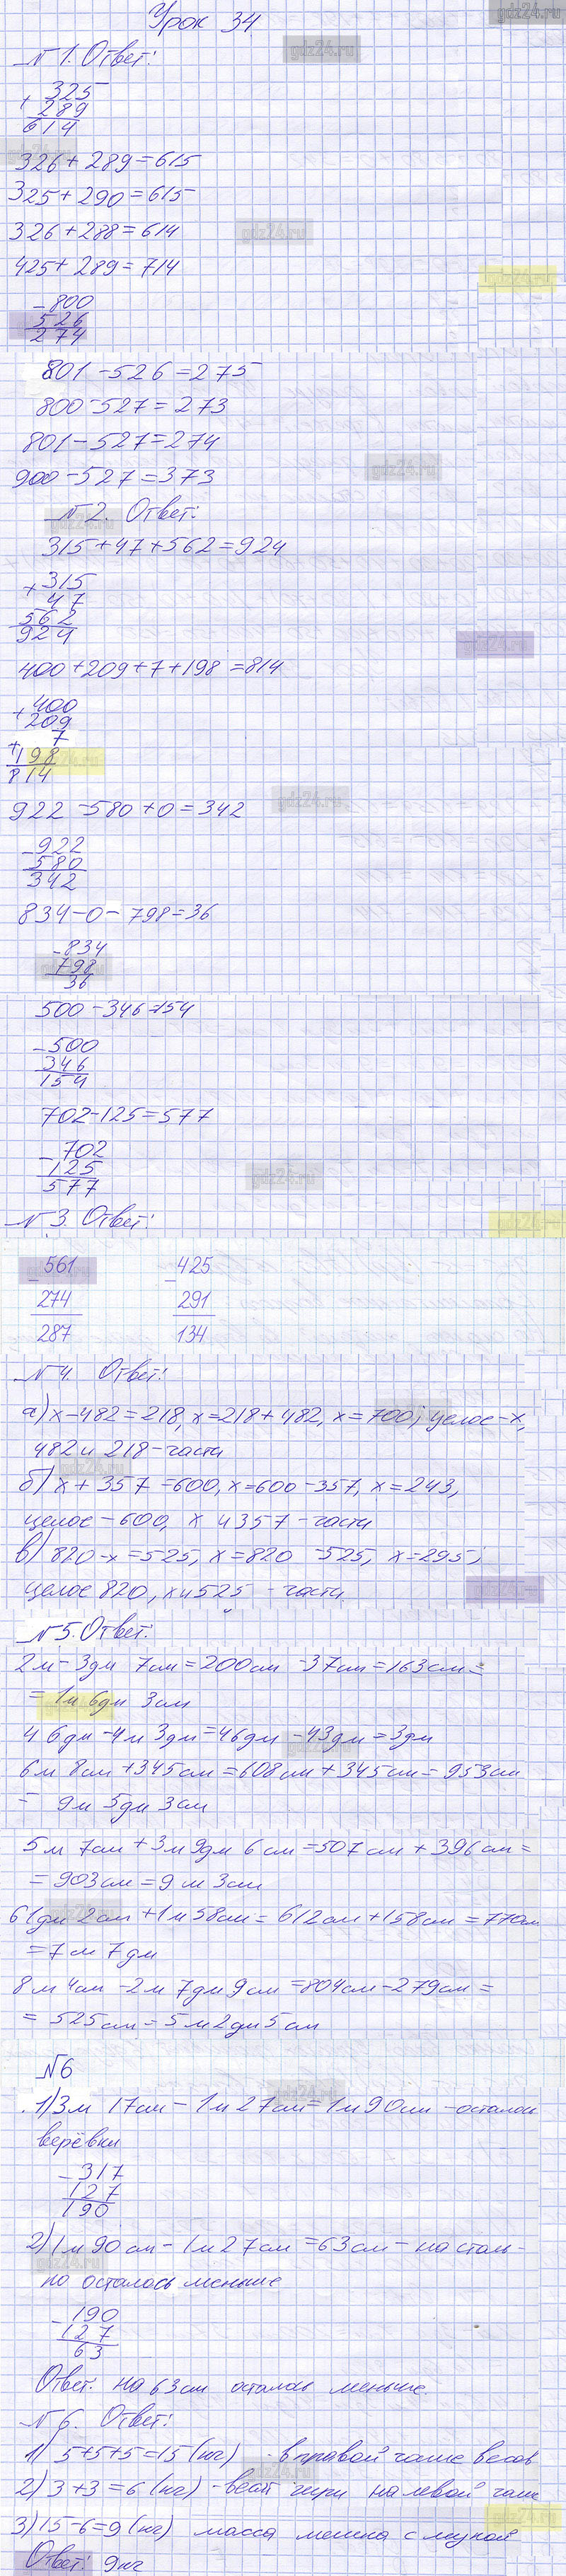 Урок 34
gdz24.ru
№1. Ответ:
gdz24.ru
+ 325
289
614
326+289=615
325+290=615
326+288=614
gdz24.ru
425+289=714
- 800
526
274
801-526=275
800-527=273
801-527=274
900-527=373
gdz24.ru
№2. Ответ:
315+47+562=924
+ 315
47
562
924
400+209+7+198=814
+ 400
209
7
+ 198
814
922-580+0=342
gdz24.ru
- 922
580
342
834-0-798=36
- 834
798
36
500-346=154
- 500
346
154
702-125=577
- 702
125
577
gdz24.ru
№3. Ответ:
- 561 - 425
274 291
287 134
№4. Ответ:
а) х-482=218, х=218+482, х=700; целое-х,
482 и 218-части
б) х+357=600, х=600-357, х=243,
целое-600, х и 357-части
в) 820-х=525, х=820-525, х=295;
целое 820, х и 525 - части
№5. Ответ:
2м-3дм 7см=200см-37см=163см=
=1м 6дм 3см
46дм-4м 3дм=46дм-43дм=3дм
6м 8см+345см=608см+345см=953см
= 9м 5дм 3см
5м 7см+3м 9дм 6см=507см+396см=
=903см=9м 3см
61дм 2см+1м 58см=612см+158см=770см
=7м 7дм
8м 4см-2м 7дм 9см=804см-279см=
=525см=5м 2дм 5см
№6
1) 3м 17см-1м 27см=1м 90см-осталось
верёвки
- 317
127
190
2) 1м 90см-1м 27см=63см-на столь-
ко осталось меньше
- 190
127
63
Ответ: на 63см осталось меньше.
№6. Ответ:
1) 5+5+5=15(кг) - в правой чаше весов
2) 3+3=6(кг)-весят гири на левой чаше
3) 15-6=9(кг) масса мешка с мукой
Ответ: 9кг